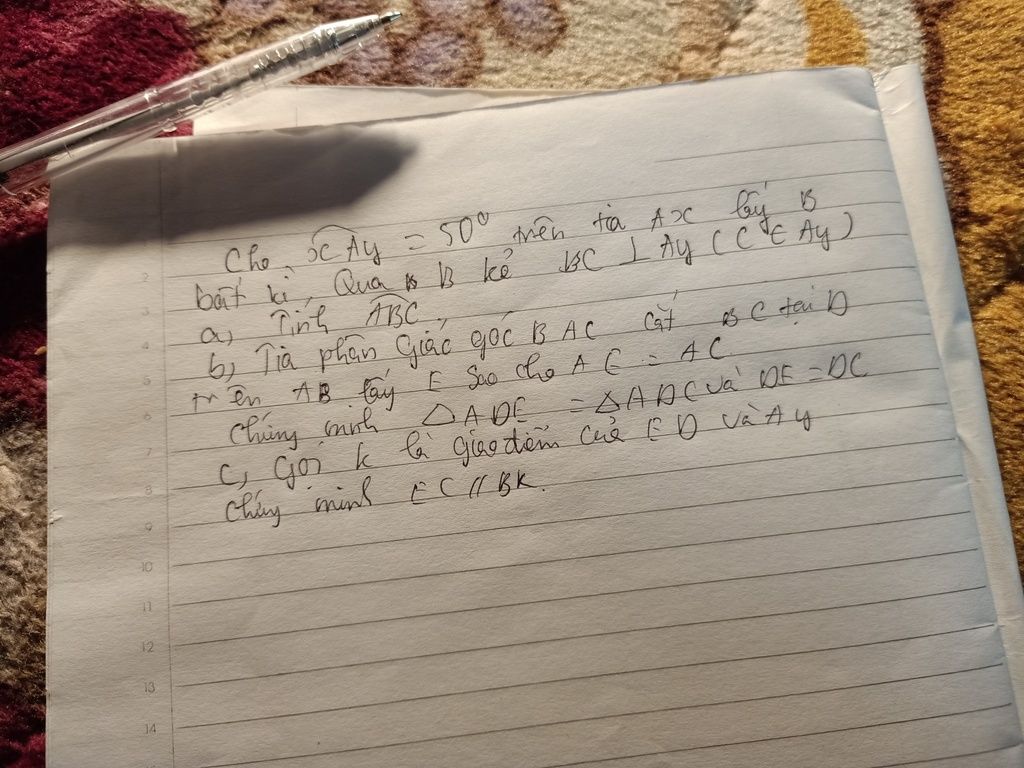 Cho xAy = 50⁰ trên tia Ax lấy B
bất kì, Qua B kẻ BC ⊥ Ay (C ∈ Ay)
a, Tính ABC.
b, Tia phân giác góc BAC cắt BC tại D
trên AB lấy E sao cho AE = AC
Chứng minh △ADE = △ADC và DE = DC
c, Gọi K là giao điểm của ED và Ay
Chứng minh EC // BK.
2
3
4
5
6
7
8
9
10
11
12
13
14